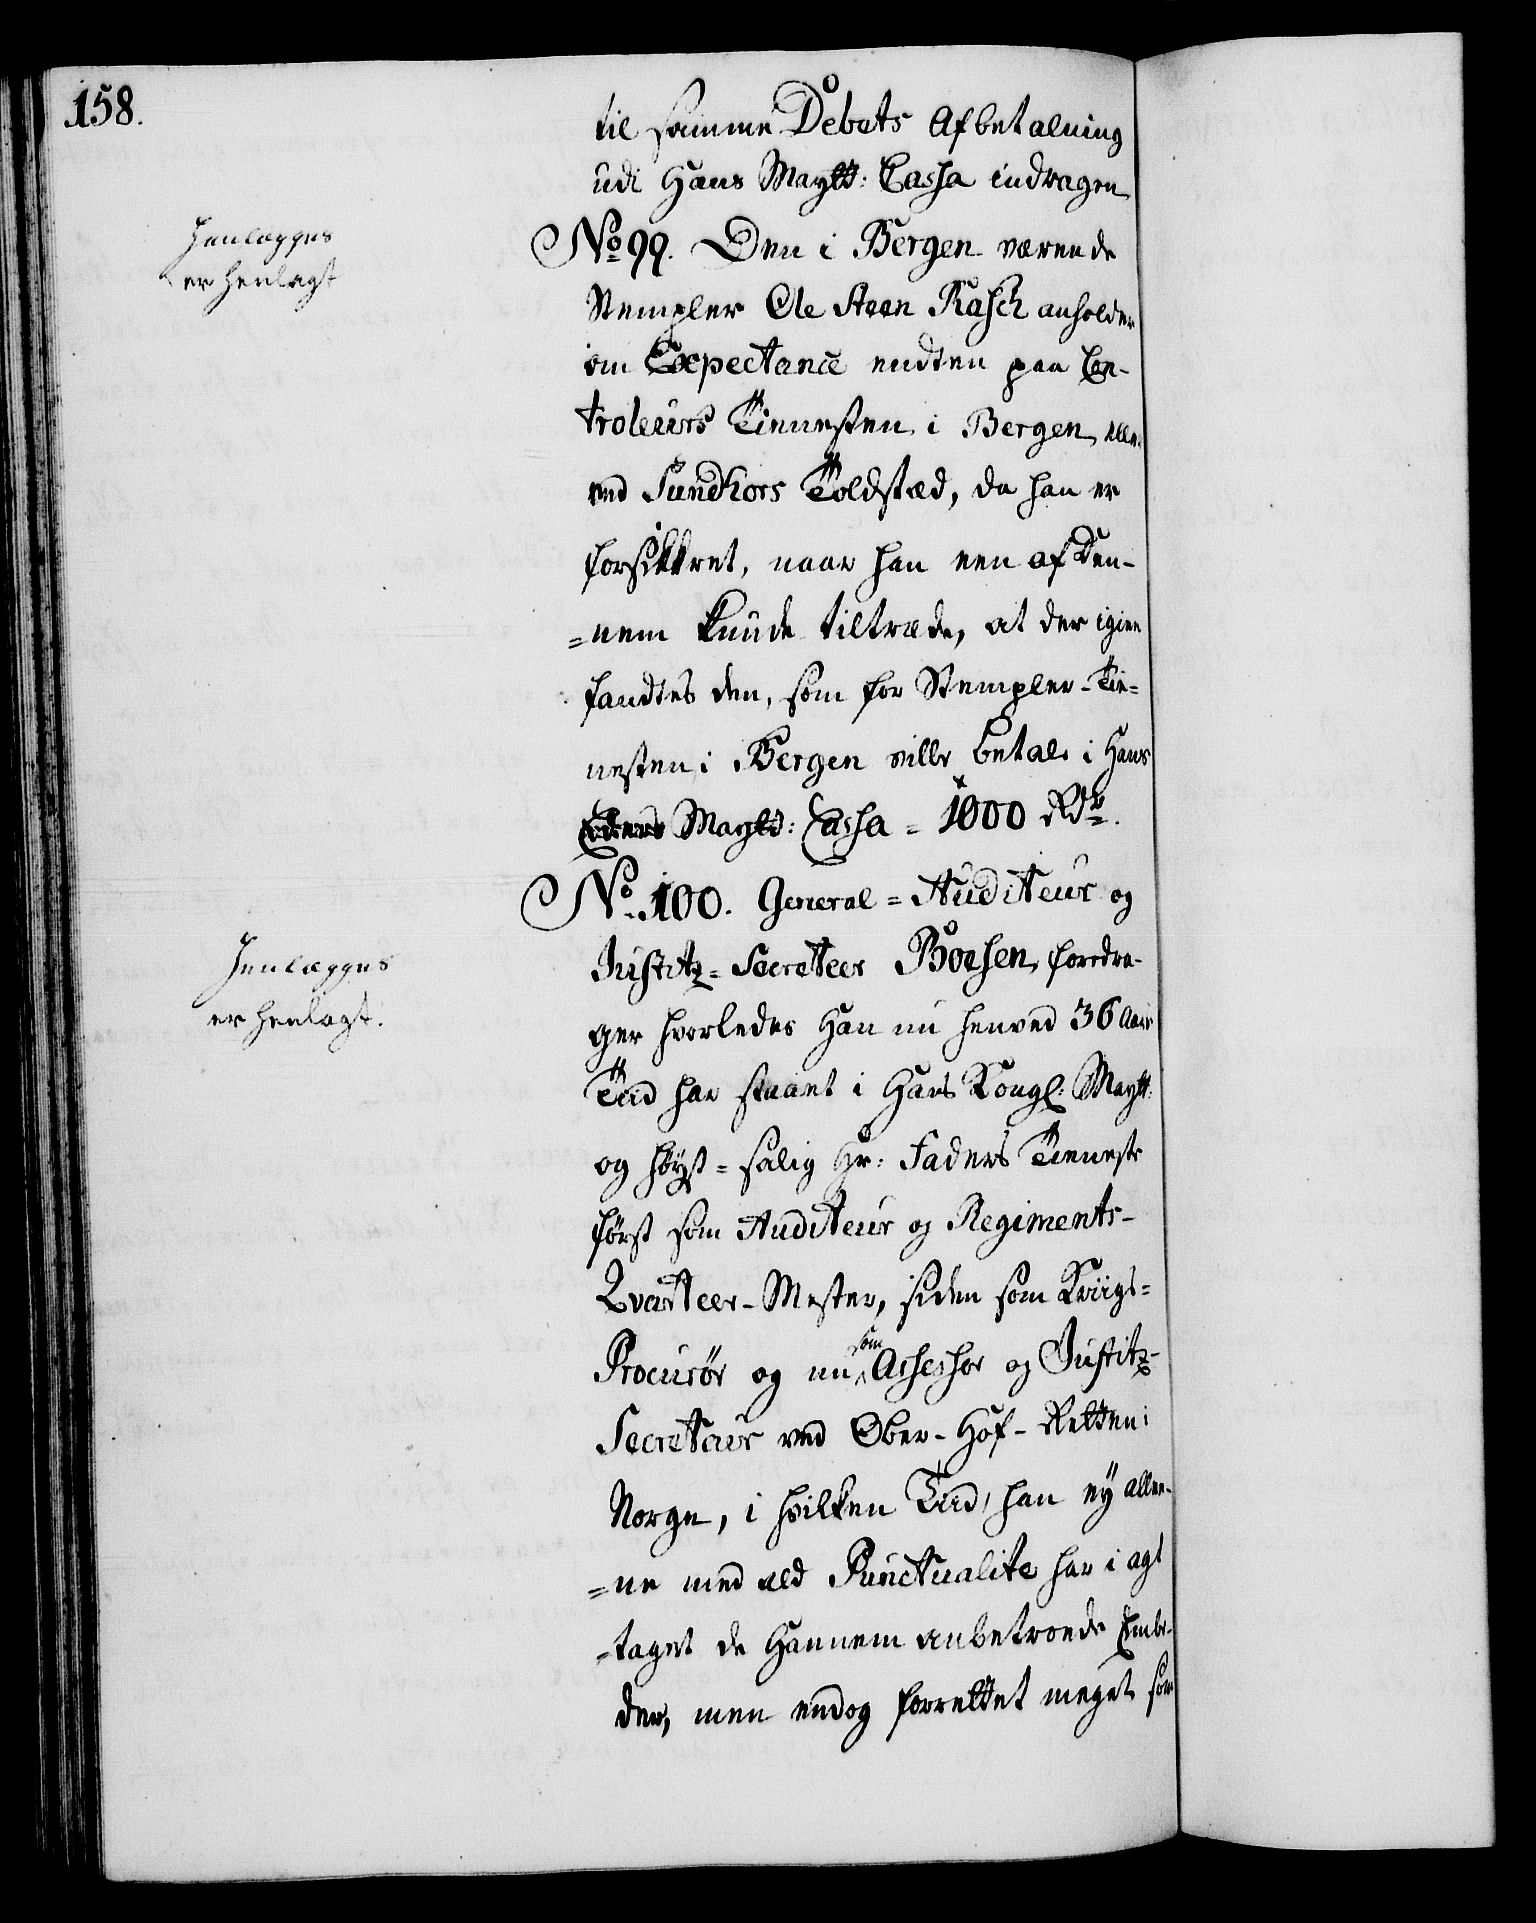 158.
til samme Debets Afbetalning
udi Hans Maytt: Cassa inddragen
Henlægges
er henlagt
No 99. Den i Bergen værende
Stempler Ole Steen Rasch anholder
om Expectance endten paa Con-
troleurs Tienesten i Bergen, eller
ved Sundhors Toldstæd, da han er
forsikkret, naar han een af Den-
=nem kunde tiltræde, at der igien
fandtes den, som for Stempler-Tie=
nesten i Bergen ville betale i Hans
Maytt: Cassa = 1000 Rdr.
Henlægges
er henlagt.
No. 100. General=Auditeur og
Justitz=Secreteer Boesen, fordra-
ger hvorledes Han nu henved 36 Aars
Tiid har staaet i Hans Kongl: Maytt:
og høyst=salig Hr: Faders Tieneste
først som Auditeur og Regiments-
Qvarteer-Mester, siden som Kriigs=
Procurør og nu som Assessor og Justitz-
Secreteur ved Ober-Hof-Retten i
Norge, i hvilken Tiid, han ey allee-
=ne med ald Punctualite har i agt
=taget de Hannem anbetroede Embe-
der, men endog forrettet meget som